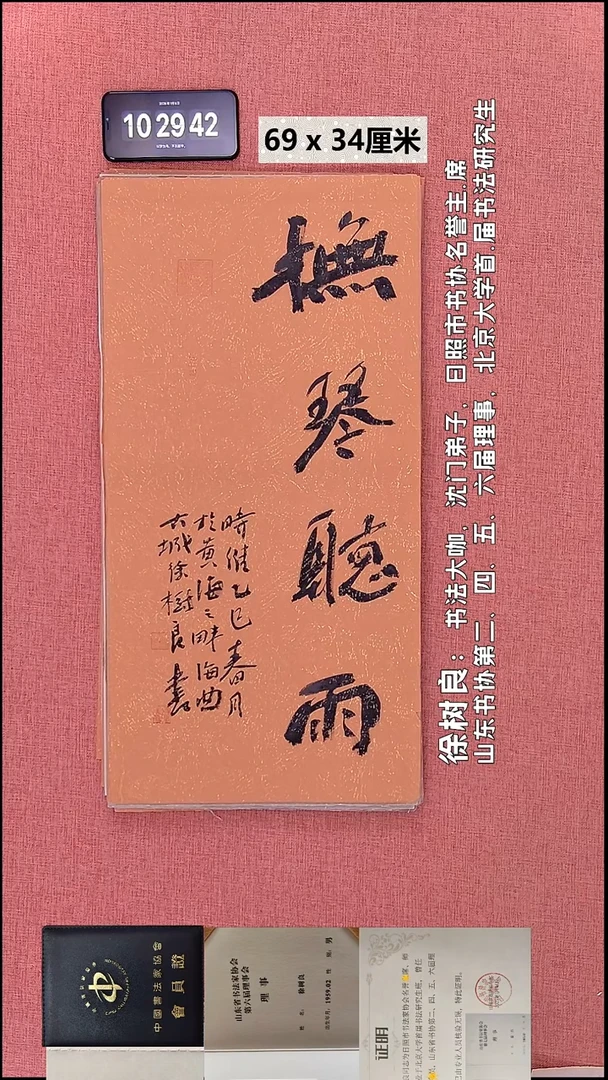 10 29 42
69 x 34厘米
撫琴聽雨
時維乙巳春月
於黄海之畔海曲
古城徐樹良書
徐树良：书法大咖，沈门弟子，日照市书协名誉主席
山东书协第二、四、五、六届理事，北京大学首届书法研究生
中國書法家協會
會員證
山东省书法家协会
第六届理事会
理事
姓名：徐树良 性别：男
出生年月：1959.02
证明